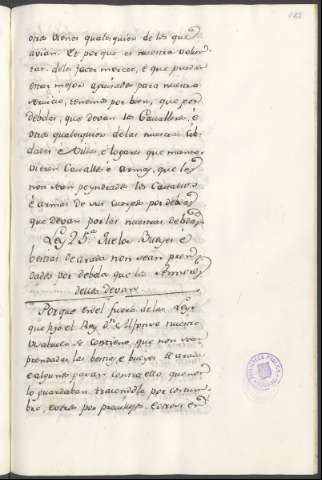 otros vienes qualesquier de los que
avian. Et porque es nuestra volun-
tad de les facer merced, e que puedan
estar mejor aguisados para nuestro
servicio, tenemos por bien, que por
debdas, que devan los Cavalleros, e
otros qualesquier de las nuestras Cib-
dades e Villas, e logares que mantu-
vieren Cavallos e armas, que les
non sean peyndrados los Cavallos
e armas de sus cuerpos por debdas
que devan por las nuestras debdas
Ley 25.ª Que los Bueyes e
bestias de arada non sean pren-
dadas por debda que los
devan
Porque en el fuero de las Leyes
que fizo el Rey Dn. Alfonso nuestro
visabuelo se contiene, que non sean
prendadas las bestias, e bueyes de arada
e algunos pasan contra ello, que non
lo guardaban, trayendolo por costum-
bre, e otros por privilegio, e otros en